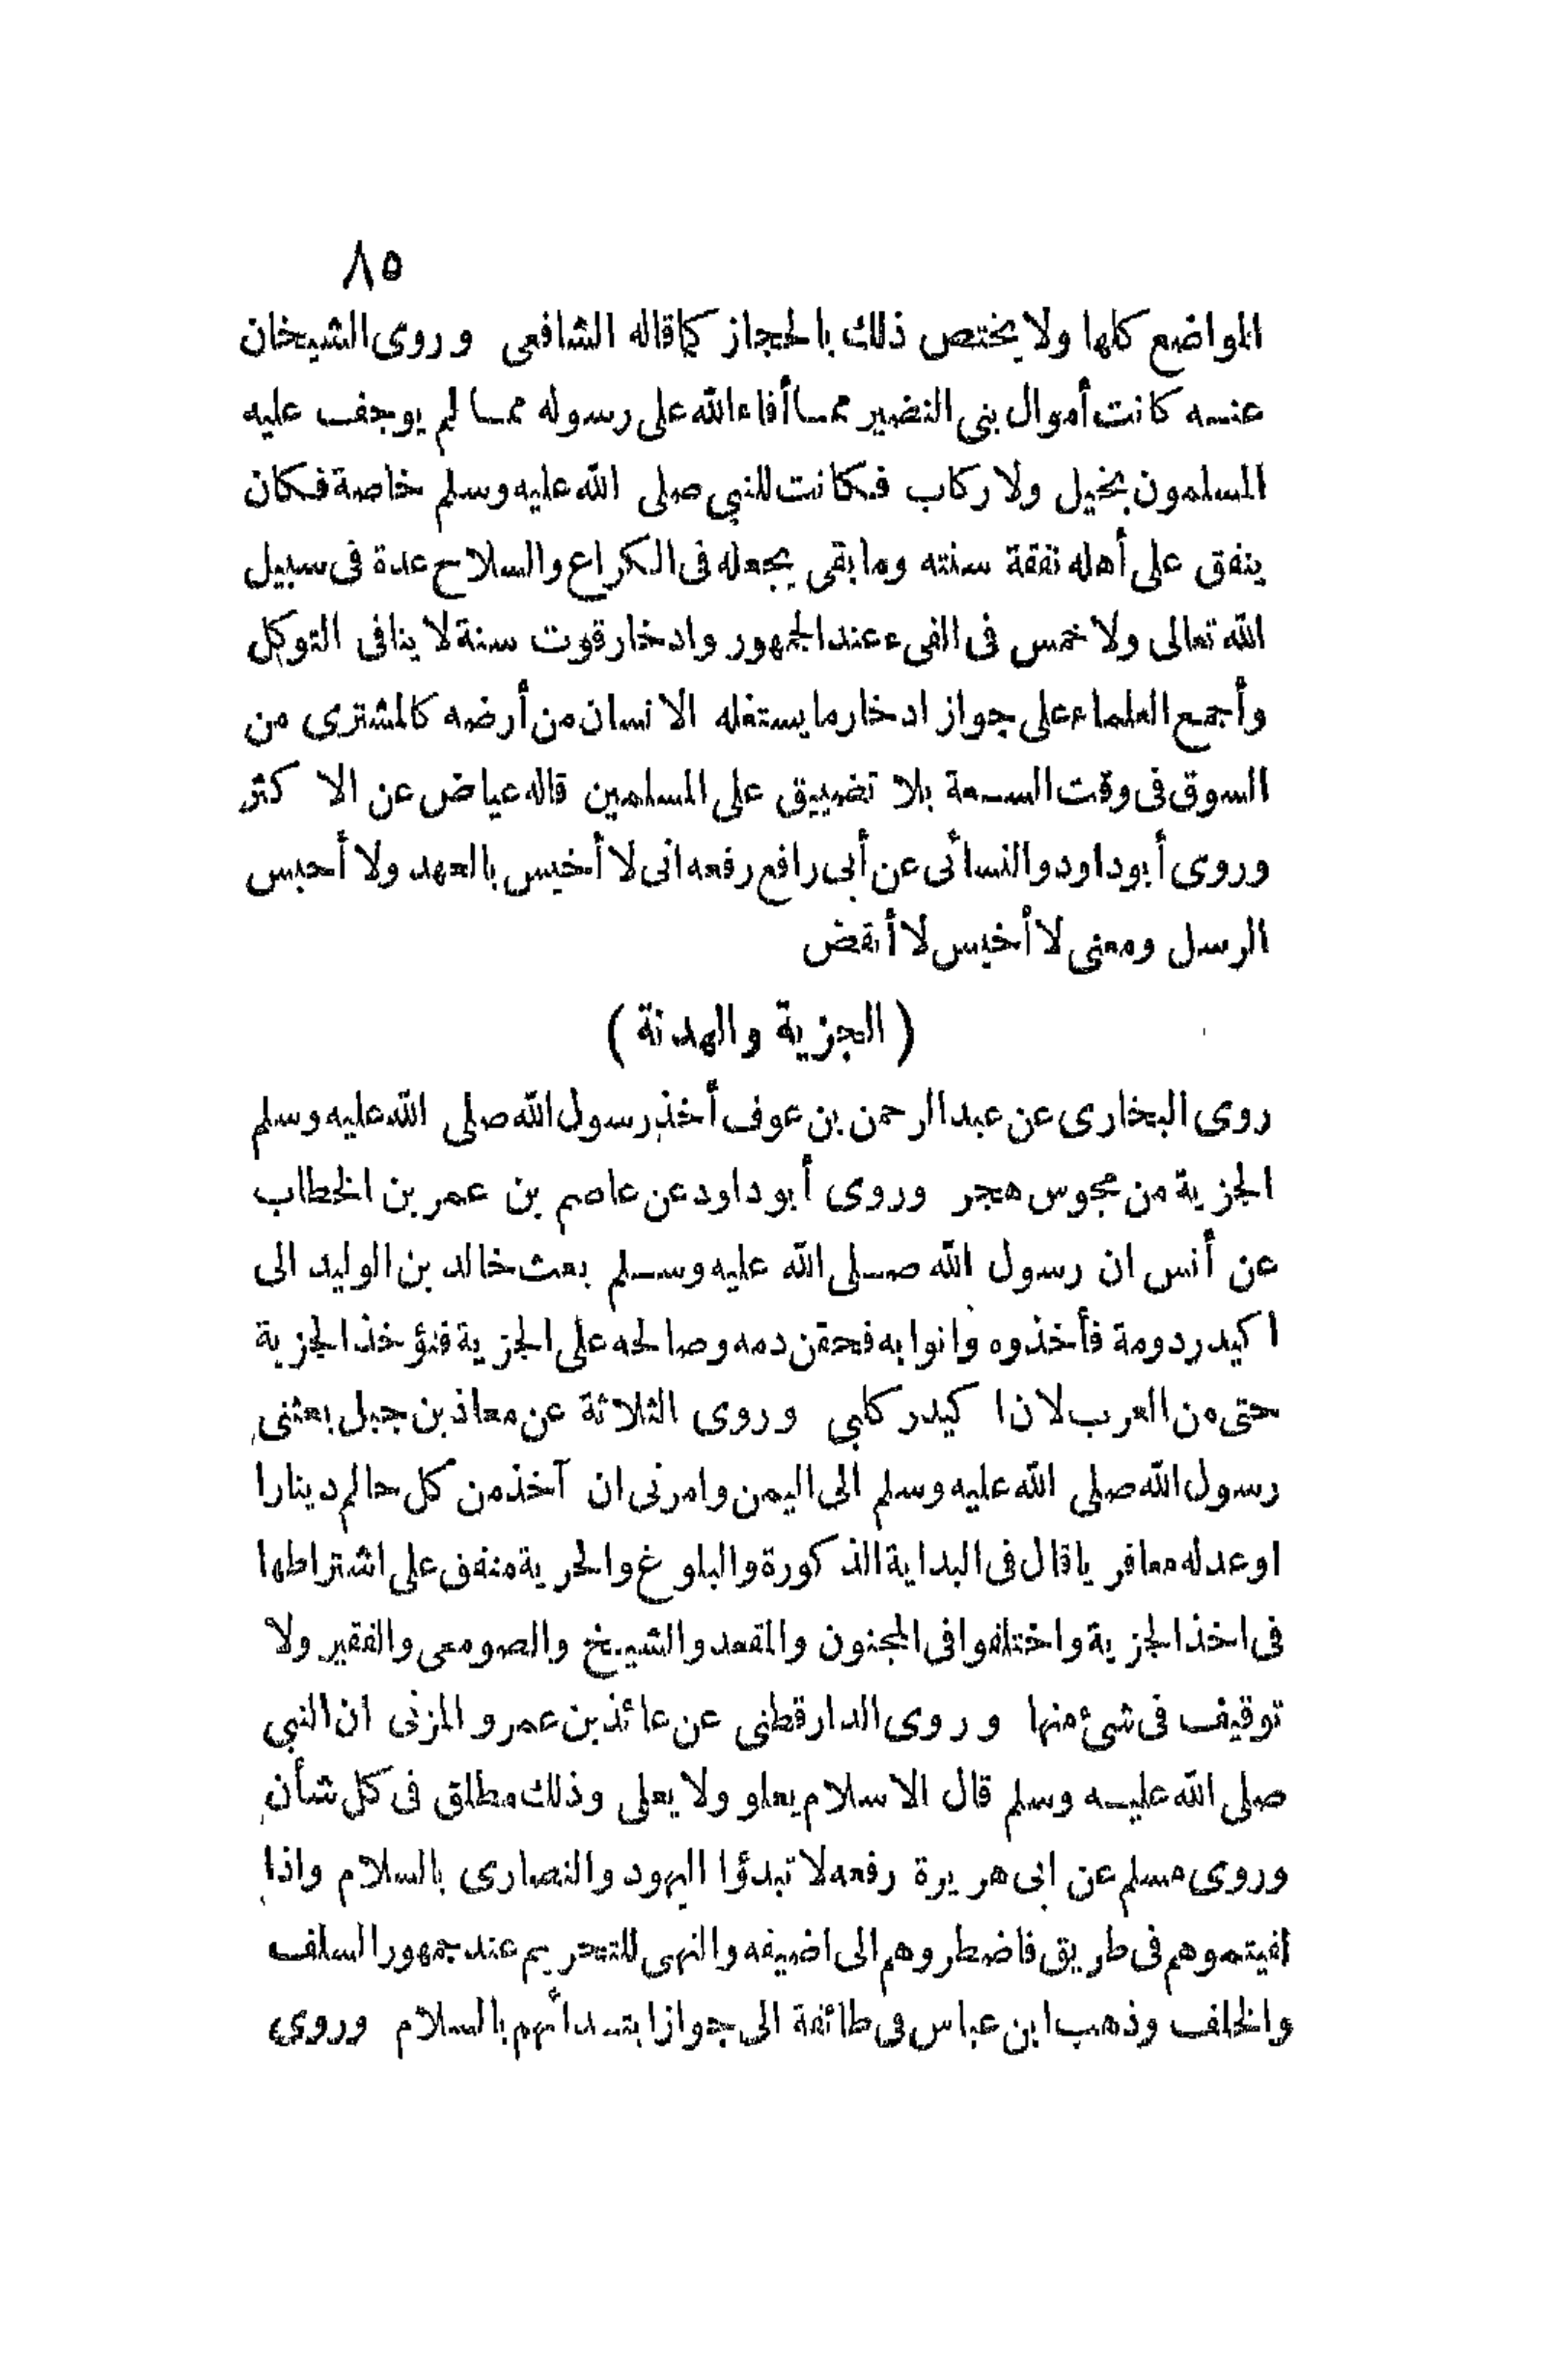 ٨٥
المواضع كلها ولا يختص ذلك بالحجاز كما قاله الشافعى وروى الشيخان
عنه كانت أموال بنى النضير مما أفاء الله على رسوله مما لم يوجف عليه
المسلمون بخيل ولا ركاب فكانت للنبي صلى الله عليه وسلم خاصة فكان
ينفق على أهله نفقة سنته وما بقى يجعله فى الكراع والسلاح عدة فى سبيل
الله تعالى ولا خمس فى الفىء عند الجمهور وادخار قوت سنة لا ينافى التوكل
وأجمع العلماء على جواز ادخار ما يستغله الانسان من أرضه كالمشترى من
السوق فى وقت السعة بلا تضييق على المسلمين قاله عياض عن الاكثر
وروى أبو داود والنسائى عن أبى رافع رفعه انى لا أخيس بالعهد ولا أحبس
الرسل ومعنى لا أخيس لا أنقض
( الجزية والهدنة )
روى البخارى عن عبد الرحمن بن عوف أخذ رسول الله صلى الله عليه وسلم
الجزية من مجوس هجر وروى أبو داود عن عاصم بن عمر بن الخطاب
عن أنس ان رسول الله صلى الله عليه وسلم بعث خالد بن الوليد الى
اكيدر دومة فأخذوه وانوا به فحقن دمه وصالحه على الجزية فتؤخذ الجزية
حتى من العرب لان اكيدر كلبى وروى الثلاثة عن معاذ بن جبل بعثنى
رسول الله صلى الله عليه وسلم الى اليمن وامرنى ان آخذ من كل حالم دينارا
او عدله معافريا قال فى البداية الذكورة والبلوغ والحرية متفق على اشتراطها
فى اخذ الجزية واختلفوا فى المجنون والمقعد والشيخ والصومعى والفقير ولا
توقيف فى شئ منها وروى الدارقطنى عن عائذ بن عمرو المزنى ان النبي
صلى الله عليه وسلم قال الاسلام يعلو ولا يعلى وذلك مطلق فى كل شأن
وروى مسلم عن ابى هريرة رفعه لا تبدؤا اليهود والنصارى بالسلام واذا
لفيتموهم فى طريق فاضطروهم الى اضيقه والنهى للتحريم عند جمهور السلف
والخلف وذهب ابن عباس فى طائفة الى جواز ابتدائهم بالسلام وروى